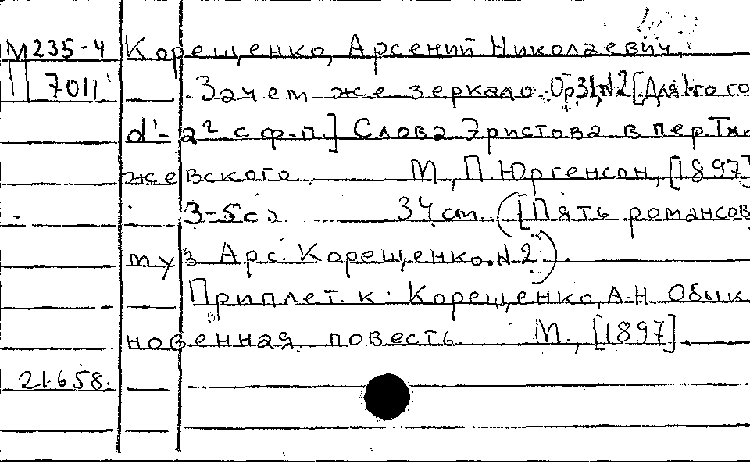 М235-4 Корещенко, Арсений Николаевич.
7011 Зачем же зеркало. Ор31,N2 [Для 1го го
d'-a² с ф-п.] Слова Эристова в пер. Тхо
жевского. М., П. Юргенсон, [1897]
3-5 с. 34 cm. ([Пять романсов
муз Арс. Корещенко. N.2).
Приплет. к: Корещенко, А.Н. Обык
новенная повесть. М., [1897].
21.658.